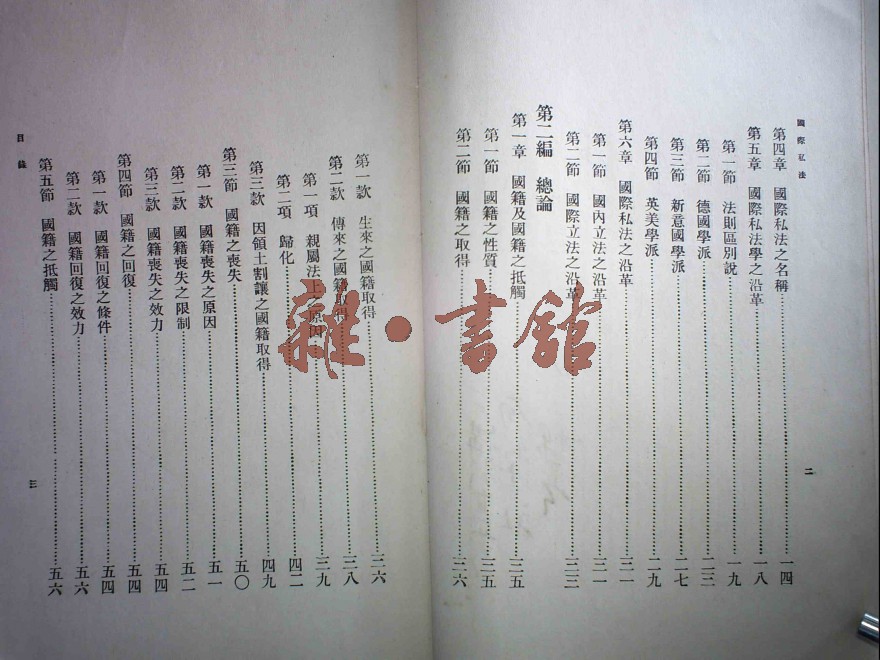 國際私法
第四章 國際私法之名稱 一四
第五章 國際私法學之沿革 一八
第一節 法則區別說 一九
第二節 德國學派 二三
第三節 新意國學派 二七
第四節 英美學派 二九
第六章 國際私法之沿革 三一
第一節 國內立法之沿革 三一
第二節 國際立法之沿革 三三
第二編 總論
第一章 國籍及國籍之抵觸 三五
第一節 國籍之性質 三五
第二節 國籍之取得 三六
二
第一款 生來之國籍取得 三六
第二款 傳來之國籍取得 三八
第一項 親屬法上之原因 三九
第二項 歸化 四二
第三款 因領土割讓之國籍取得 四九
第三節 國籍之喪失 五〇
第一款 國籍喪失之原因 五一
第二款 國籍喪失之限制 五二
第三款 國籍喪失之效力 五四
第四節 國籍之回復 五四
第一款 國籍回復之條件 五四
第二款 國籍回復之效力 五六
第五節 國籍之抵觸 五六
目錄
三
雜·書館